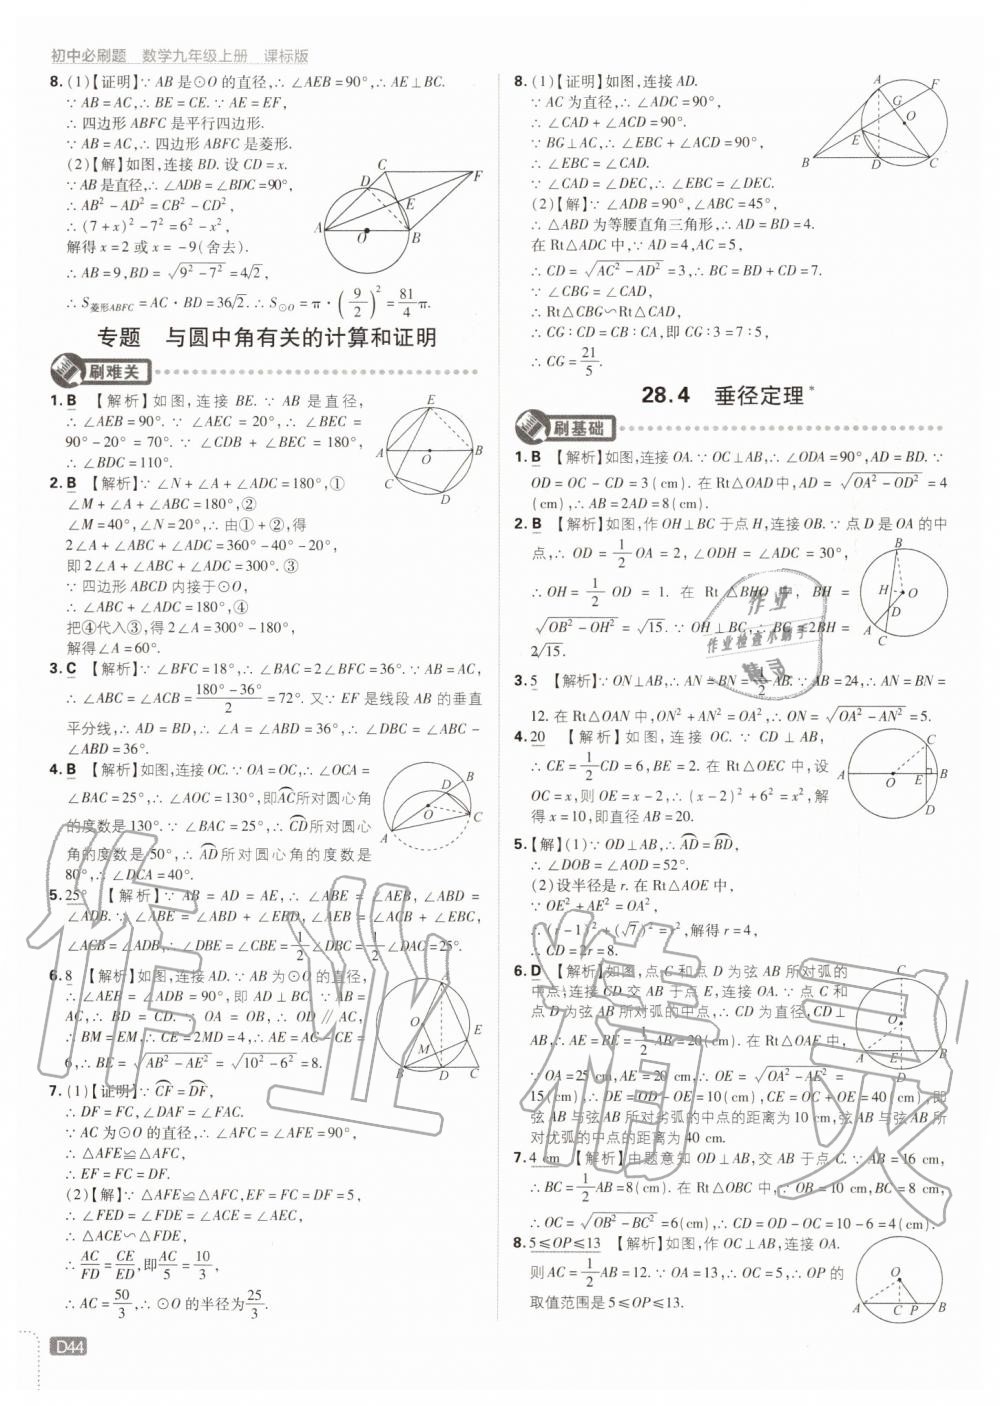 初中必刷题 数学九年级上册 课标版
8. (1)【证明】∵ AB 是⊙O 的直径,∴ ∠AEB = 90°,∴ AE⊥BC.
∵ AB = AC,∴ BE = CE. ∵ AE = EF,
∴ 四边形 ABFC 是平行四边形.
∵ AB = AC,∴ 四边形 ABFC 是菱形.
(2)【解】如图,连接 BD. 设 CD = x.
∵ AB 是直径,∴ ∠ADB = ∠BDC = 90°,
∴ AB² - AD² = CB² - CD²,
∴ (7 + x)² - 7² = 6² - x²,
解得 x = 2 或 x = -9(舍去).
∴ AB = 9, BD = √(9² - 7²) = 4√2,
∴ S菱形ABFC = AC·BD = 36√2. ∴ S⊙O = π·(9/2)² = 81/4 π.
专题 与圆中角有关的计算和证明
刷难关
1. B 【解析】如图,连接 BE. ∵ AB 是直径,
∴ ∠AEB = 90°. ∵ ∠AEC = 20°,∴ ∠BEC =
90° - 20° = 70°. ∵ ∠CDB + ∠BEC = 180°,
∴ ∠BDC = 110°.
2. B 【解析】∵ ∠N + ∠A + ∠ADC = 180°,①
∠M + ∠A + ∠ABC = 180°,②
∠M = 40°,∠N = 20°,∴ 由① + ②,得
2∠A + ∠ABC + ∠ADC = 360° - 40° - 20°,
即 2∠A + ∠ABC + ∠ADC = 300°. ③
∵ 四边形 ABCD 内接于⊙O,
∴ ∠ABC + ∠ADC = 180°,④
把④代入③,得 2∠A = 300° - 180°,
解得∠A = 60°.
3. C 【解析】∵ ∠BFC = 18°,∴ ∠BAC = 2∠BFC = 36°. ∵ AB = AC,
∴ ∠ABC = ∠ACB = (180° - 36°)/2 = 72°. 又∵ EF 是线段 AB 的垂直
平分线,∴ AD = BD,∴ ∠A = ∠ABD = 36°,∴ ∠DBC = ∠ABC -
∠ABD = 36°.
4. B 【解析】如图,连接 OC. ∵ OA = OC,∴ ∠OCA =
∠BAC = 25°,∴ ∠AOC = 130°,即AC所对圆心角
的度数是 130°. ∵ ∠BAC = 25°,∴ CD所对圆心
角的度数是 50°,∴ AD 所对圆心角的度数是
80°,∴ ∠DCA = 40°.
5. 25° 【解析】∵ AB = AD = AE,∴ ∠ABE = ∠AEB, ∠ABD =
∠ADB. ∵ ∠ABE = ∠ABD + ∠EBD, ∠AEB = ∠ACB + ∠EBC,
∠ACB = ∠ADB,∴ ∠DBE = ∠CBE = 1/2∠DBC = 1/2∠DAC = 25°.
6. 8 【解析】如图,连接 AD. ∵ AB 为⊙O 的直径,
∴ ∠AEB = ∠ADB = 90°,即 AD⊥BC. ∵ AB =
AC,∴ BD = CD. ∵ OA = OB,∴ OD∥AC,
∴ BM = EM,∴ CE = 2MD = 4,∴ AE = AC - CE =
6,∴ BE = √(AB² - AE²) = √(10² - 6²) = 8.
7. (1)【证明】∵ CF = DF,
∴ DF = FC, ∠DAF = ∠FAC.
∵ AC 为⊙O 的直径,∴ ∠AFC = ∠AFE = 90°,
∴ △AFE≌△AFC,
∴ EF = FC = DF.
(2)【解】∵ △AFE≌△AFC, EF = FC = DF = 5,
∴ ∠FED = ∠FDE = ∠ACE = ∠AEC,
∴ △ACE∽△FDE,
∴ AC/FD = CE/ED,即 AC/5 = 10/3,
∴ AC = 50/3,∴ ⊙O 的半径为 25/3.
D44
8. (1)【证明】如图,连接 AD.
∵ AC 为直径,∴ ∠ADC = 90°,
∴ ∠CAD + ∠ACD = 90°.
∵ BG⊥AC,∴ ∠EBC + ∠ACD = 90°,
∴ ∠EBC = ∠CAD.
∵ ∠CAD = ∠DEC,∴ ∠EBC = ∠DEC.
(2)【解】∵ ∠ADB = 90°, ∠ABC = 45°,
∴ △ABD 为等腰直角三角形,∴ AD = BD = 4.
在 Rt△ADC 中,∵ AD = 4, AC = 5,
∴ CD = √(AC² - AD²) = 3,∴ BC = BD + CD = 7.
∵ ∠CBG = ∠CAD,
∴ Rt△CBG∽Rt△CAD,
∴ CG∶CD = CB∶CA,即 CG∶3 = 7∶5,
∴ CG = 21/5.
28.4 垂径定理*
刷基础
1. B 【解析】如图,连接 OA. ∵ OC⊥AB,∴ ∠ODA = 90°, AD = BD. ∵
OD = OC - CD = 3(cm). 在 Rt△OAD 中, AD = √(OA² - OD²) = 4
(cm),∴ AB = 2AD = 8(cm).
2. B 【解析】如图,作 OH⊥BC 于点 H,连接 OB. ∵ 点 D 是 OA 的中
点,∴ OD = 1/2 OA = 2, ∠ODH = ∠ADC = 30°,
∴ OH = 1/2 OD = 1. 在 Rt△BHO 中, BH =
√(OB² - OH²) = √15. ∵ OH⊥BC,∴ BC = 2BH =
2√15.
3. 5 【解析】∵ ON⊥AB,∴ AN = BN = 1/2 AB. ∵ AB = 24,∴ AN = BN =
12. 在 Rt△OAN 中, ON² + AN² = OA²,∴ ON = √(OA² - AN²) = 5.
4. 20 【解析】如图,连接 OC. ∵ CD⊥AB,
∴ CE = 1/2 CD = 6, BE = 2. 在 Rt△OEC 中,设
OC = x,则 OE = x - 2,∴ (x - 2)² + 6² = x²,解
得 x = 10,即直径 AB = 20.
5.【解】(1)∵ OD⊥AB,∴ AD = BD,
∴ ∠DOB = ∠AOD = 52°.
(2)设半径是 r. 在 Rt△AOE 中,
∵ OE² + AE² = OA²,
∴ (r - 1)² + (√7)² = r²,解得 r = 4,
∴ CD = 2r = 8.
6. D 【解析】如图,点 C 和点 D 为弦 AB 所对弧的
中点,连接 CD 交 AB 于点 E,连接 OA. ∵ 点 C 和
点 D 为弦 AB 所对弧的中点,∴ CD 为直径, CD⊥
AB,∴ AE = BE = 1/2 AB = 20(cm). 在 Rt△OAE 中,
∵ OA = 25 cm, AE = 20 cm,∴ OE = √(OA² - AE²) =
15(cm),∴ DE = OD - OE = 10(cm), CE = OC + OE = 40(cm),即
弦 AB 与弦 AB 所对劣弧的中点的距离为 10 cm,弦 AB 与弦 AB 所
对优弧的中点的距离为 40 cm.
7. 4 cm 【解析】由题意知 OD⊥AB,交 AB 于点 C. ∵ AB = 16 cm,
∴ BC = 1/2 AB = 8(cm). 在 Rt△OBC 中,∵ OB = 10 cm, BC = 8 cm,
∴ OC = √(OB² - BC²) = 6(cm),∴ CD = OD - OC = 10 - 6 = 4(cm).
8. 5≤OP≤13 【解析】如图,作 OC⊥AB,连接 OA.
则 AC = 1/2 AB = 12. ∵ OA = 13,∴ OC = 5,∴ OP 的
取值范围是 5≤OP≤13.
作业
作业检查小助手
精灵
作业精灵